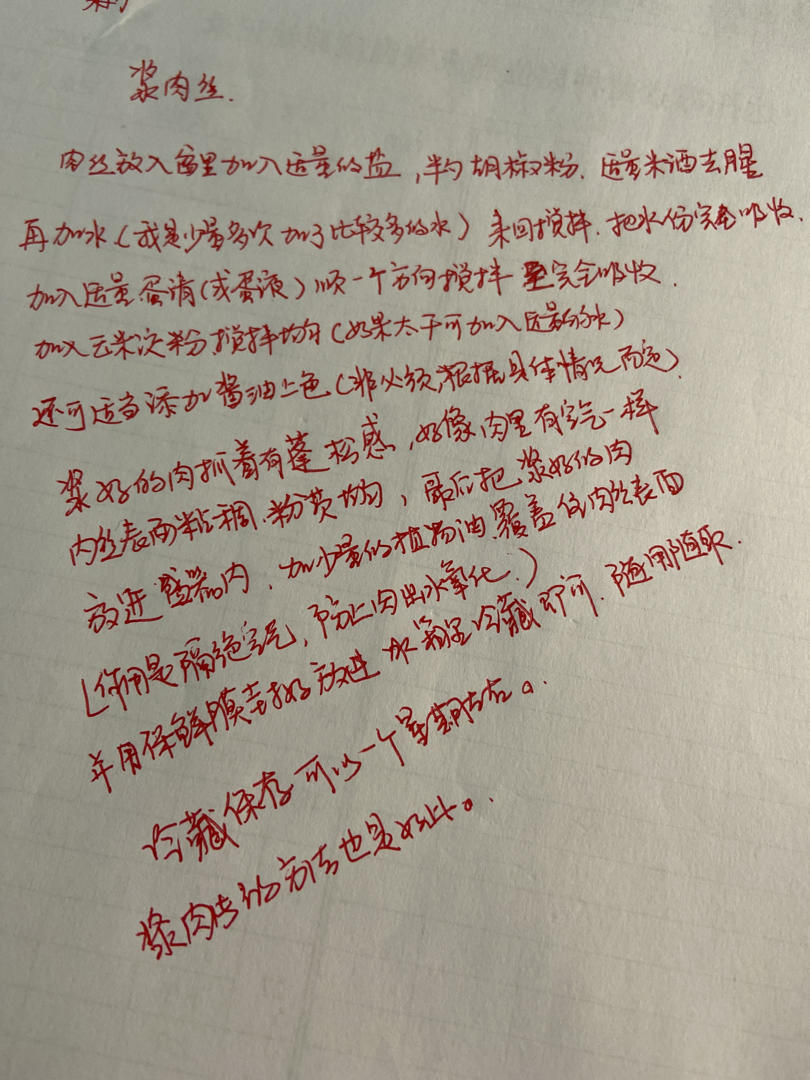 浆肉丝.
肉丝放入盆里加入适量的盐,半勺胡椒粉.适量米酒去腥
再加水(我是少量多次加了比较多的水)来回搅拌.把水份完全吸收.
加入适量蛋清(或蛋液)顺一个方向搅拌至完全吸收.
加入玉米淀粉搅拌均匀(如果太干可加入适量的水)
还可适当添加酱油上色(非必须,根据具体情况而定).
浆好的肉抓着有蓬松感,好像肉里有空气一样
肉丝表面粘稠.粉浆均匀,最后把浆好的肉
放进盛器内,加少量的植物油.覆盖住肉丝表面
(作用是隔绝空气,防止肉出水氧化.)
并用保鲜膜封好放进冰箱里冷藏即可.随用随取.
冷藏保存可以一个星期左右。
浆肉片的方法也是如此。